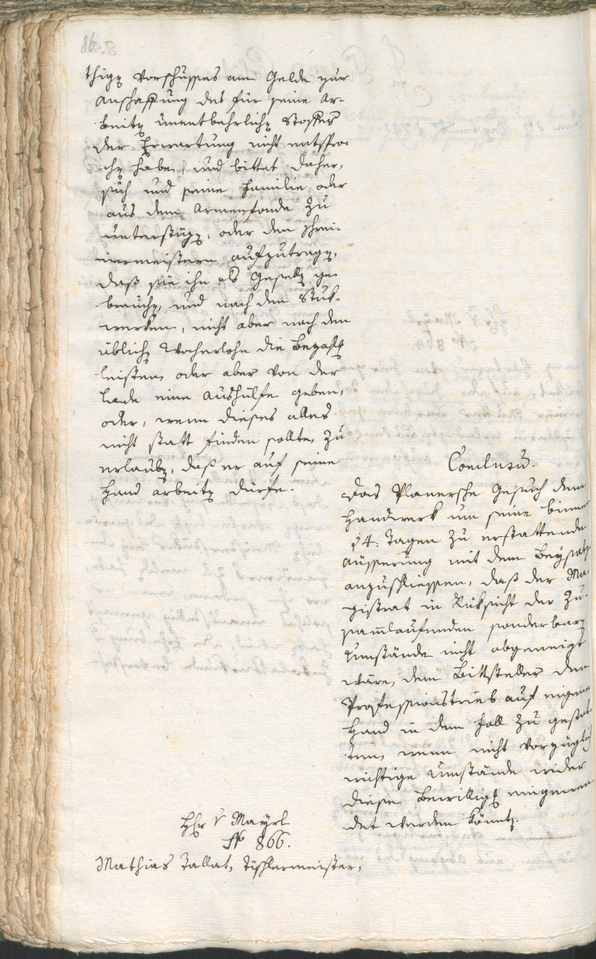 thigen Vorschusses am Gelde zur
Anschaffung des für seine Ar-
beiten unentbehrlichen Stoffes
der Erwartung nicht entspro-
chen habe, und bittet daher,
sich und seine Familie oder
aus dem Armenfonde zu
unterstüzen, oder den Schrei-
nermeistern aufzutragen,
daß sie ihn als Gesellen ge-
brauchen, und nach den Stük-
werken, nicht aber nach dem
üblichen Wocherlohn die Bezahlg
leisten, oder aber von der
Lade eine Aushülfe geben,
oder, wenn dieses alles
nicht statt finden sollte, zu
erlauben, daß er auf seine
Hand arbeiten dürfe.
Conclusu.
Das Planersche Gesuch dem
Handwerk um seine binnen
14. Tagen zu erstattende
Äusserung mit dem Beysatze
anzuschliessen, daß der Ma-
gistrat in Rüksicht der zu-
sammlaufenden sonderbaren
Umstände nicht abgeneigt
wäre, dem Bittsteller den
Professionstrieb auf eigene
Hand in dem Fall zu gestat-
ten, wenn nicht vorzüglich
wichtige Umstände wider
diese Bewilligg eingewen-
det werden könnten.
Hhr v Mayrl
No 866.
Mathias Tallat, Tischlermeister,